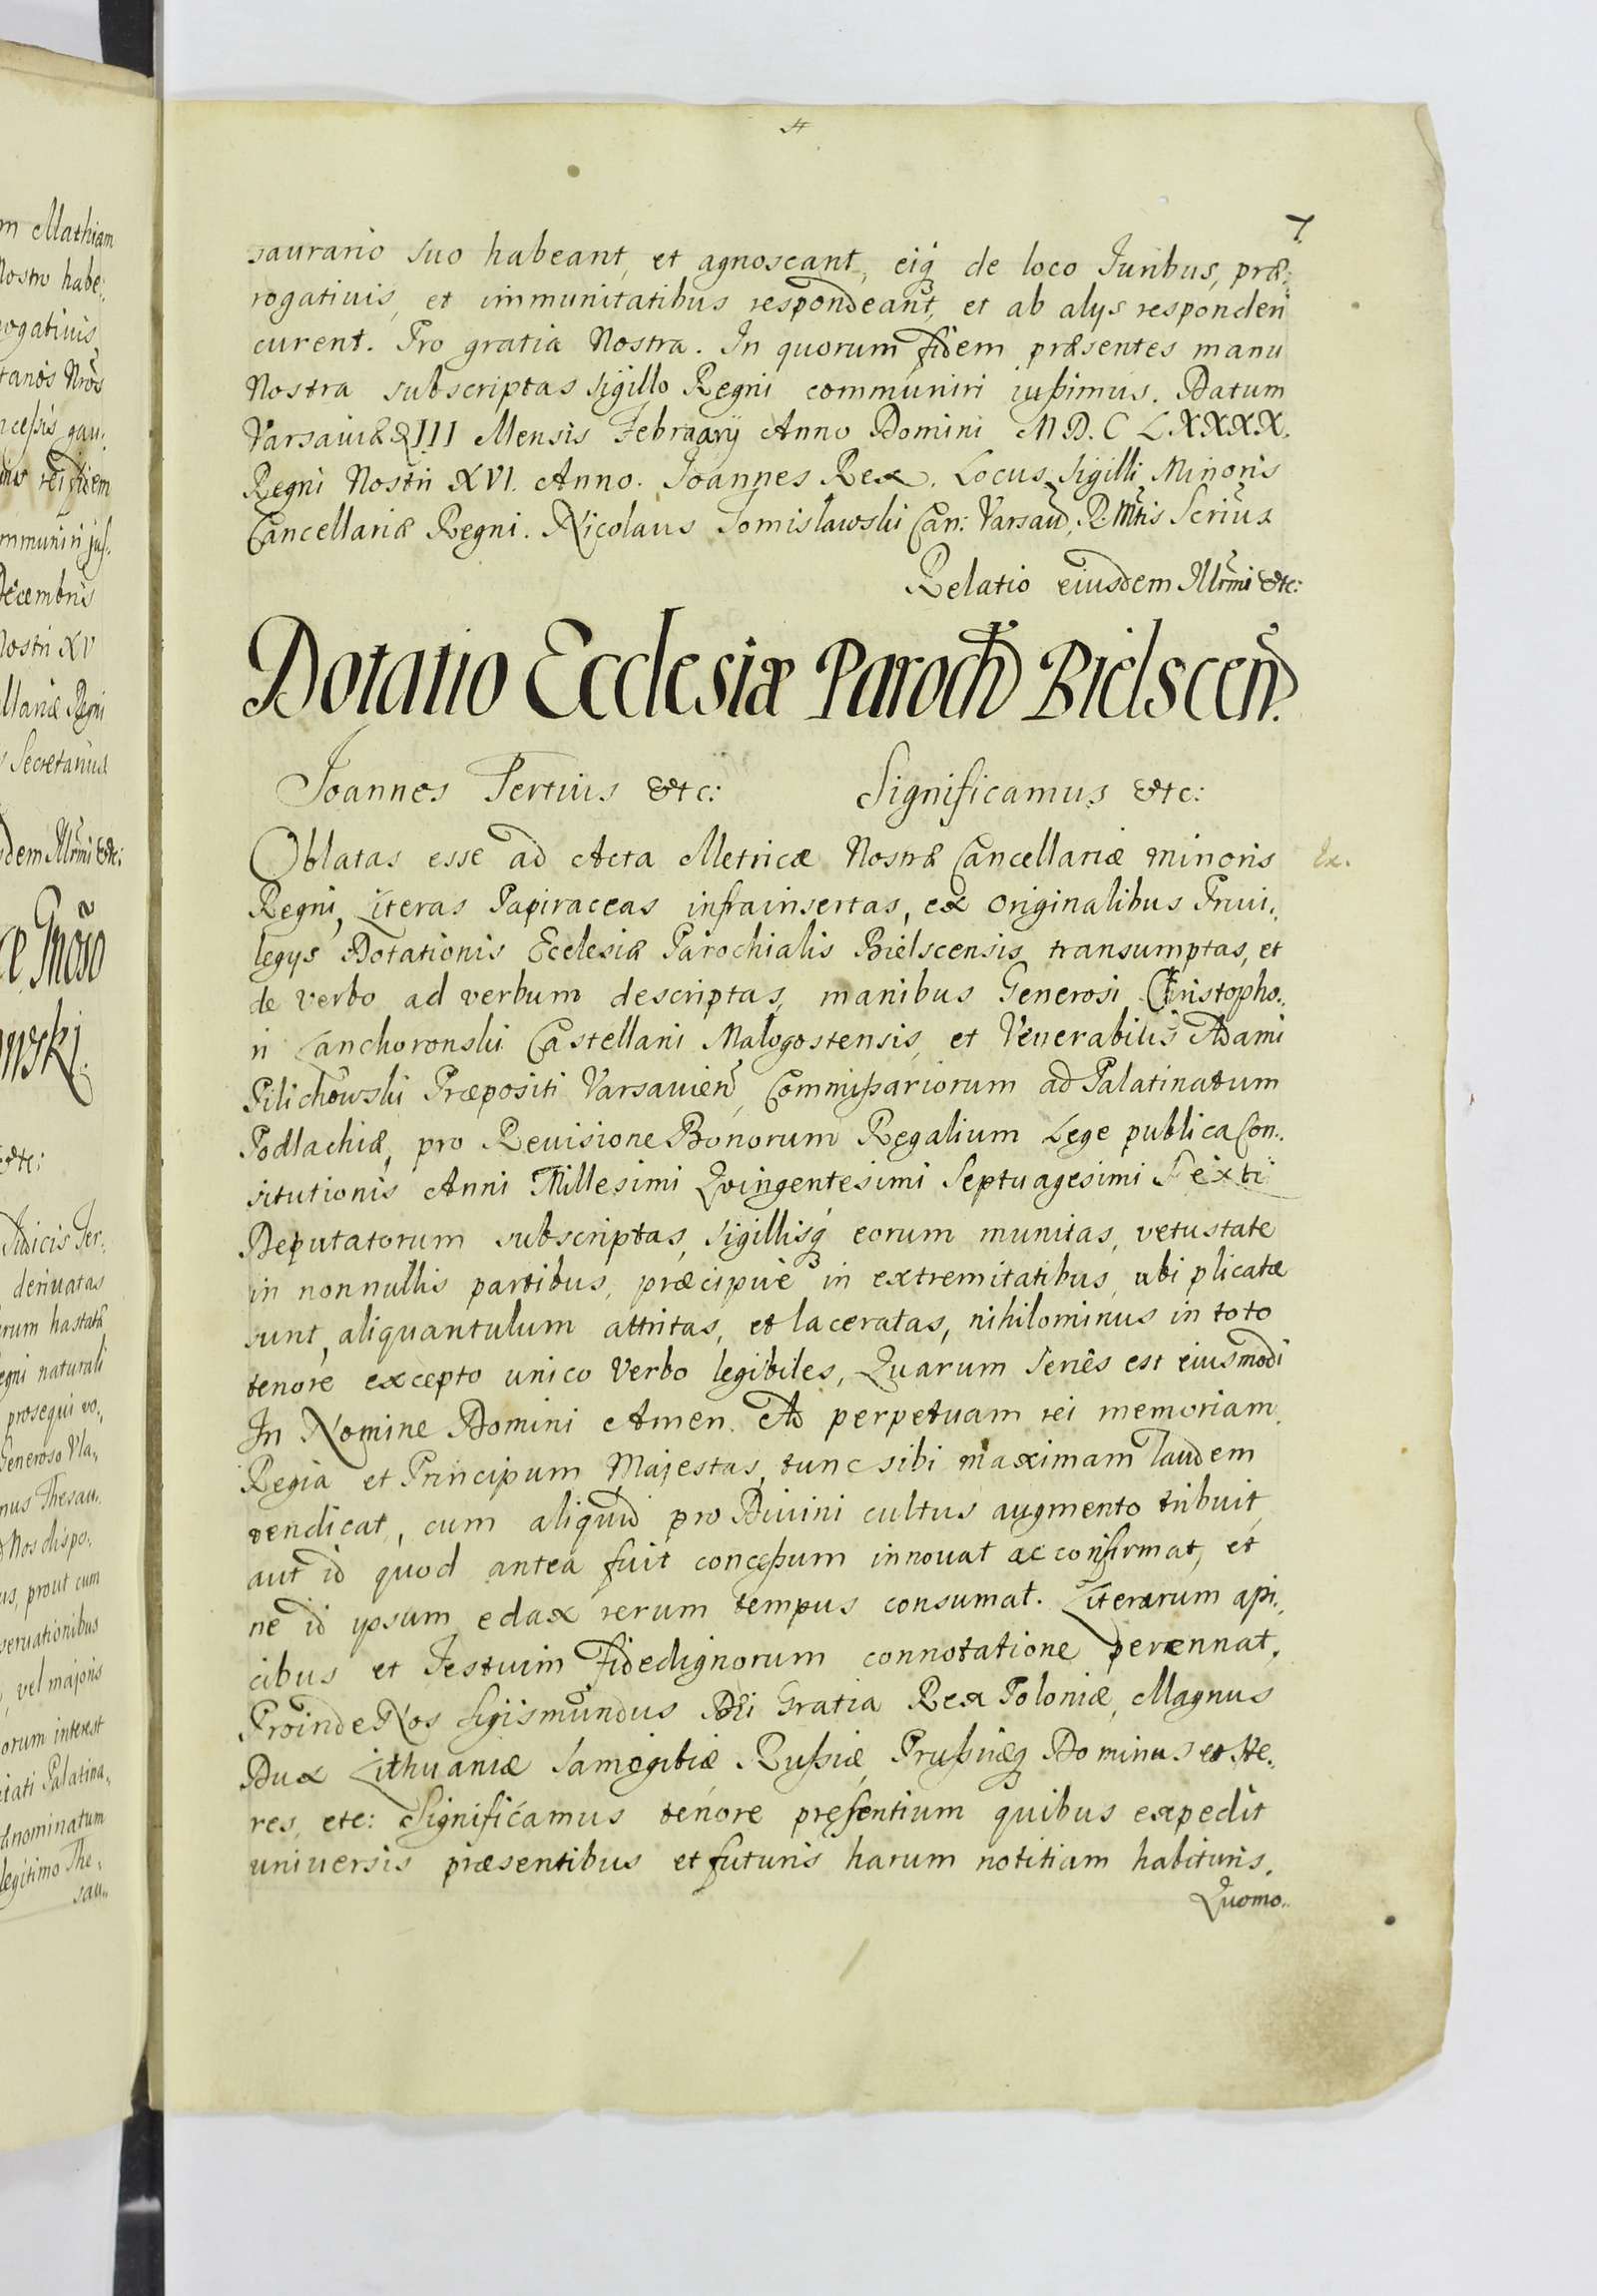 7
saurario suo habeant, et agnoscant, eiq́ de loco Juribus, præ:
rogatiuis, et immunitatibus respondeant, et ab alys responderi
curent. Pro gratia Nostra. In quorum fidem præsentes manu
Nostra subscriptas Sigillo Regni communiri iußimus. Datum
Varsauiæ XIII Mensis Februarÿ Anno Domini M D. C LXXXX.
Regni Nostri XVI. Anno. Joannes Rex. Locus Sigilli Minoris
Cancellariæ Regni. Nicolaus Tomisławski Can: Varsau̅. R. Mtis Scrius
Relatio eiusdem Illrmi &tc:
Dotatio Ecclesiæ Paroch Bielscen̅.
Joannes Tertius &tc: Significamus &tc:
Oblatas esse ad Acta Metricæ Nostræ Cancellariæ minoris
Regni, Literas Papiraceas infrainsertas, ex originalibus Priui:
legys Dotationis Ecclesiæ Parochialis Bielscensis transumptas, et
de verbo ad verbum descriptas, manibus Generosi Christopho:
ri Lanchoronski Castellani Malogostensis, et Venerabilis Adami
Pilichowski Præpositi Varsauien̅, Commißariorum ad Palatinatum
Podlachiæ, pro Reuisione Bonorum Regalium Lege publica Con:
stitutionis Anni Millesimi Quingentesimi Septuagesimi Sexti
Deputatorum subscriptas, Sigillisq́ eorum munitas, vetustate
in nonnullis partibus, præcipuè in extremitatibus, ubi plicatæ
sunt, aliquantulum attritas, et laceratas, nihilominus in toto
tenore excepto unico Verbo legibiles, Quarum Seriês est eiusmodi
In Nomine Domini Amen. Ad perpetuam rei memoriam.
Regia et Principum Majestas, tunc sibi maximam laudem
vendicat, cum aliquid pro Diuini cultus augmento tribuit,
aut id quod antea fuit conceßum innouat ac confirmat, et
ne id ypsum edax rerum tempus consumat. Literarum api:
cibus et Testium Fidedignorum connotatione perennat.
Proinde Nos Sigismundus Dei Gratia Rex Poloniæ, Magnus
Dux Lithuaniæ Samogitiæ Rußiæ, Prußiæq́ Dominus et He:
res, etc: Significamus tenore pręsentium quibus expedit
universis præsentibus et futuris harum notitiam habituris.
Quomo: